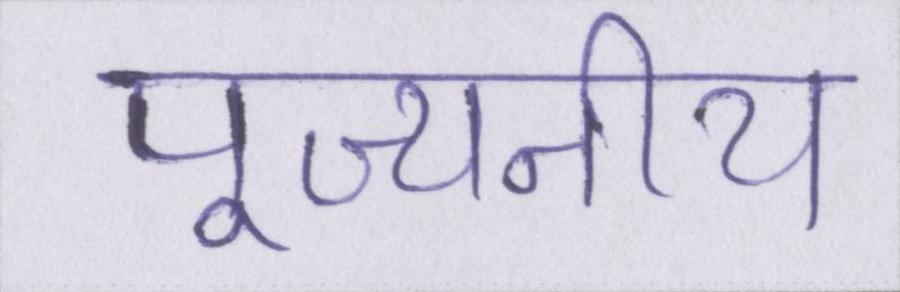 पूज्यनीय